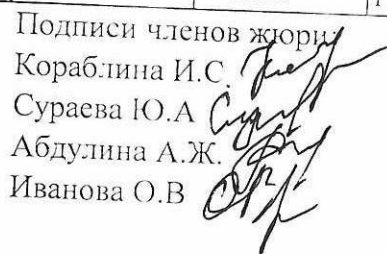 Подписи членов жюри:
Кораблина И.С
Сураева Ю.А
Абдулина А.Ж.
Иванова О.В